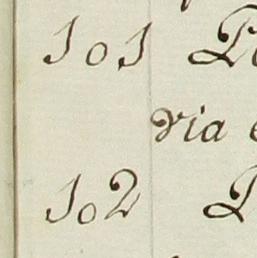 101
via
102